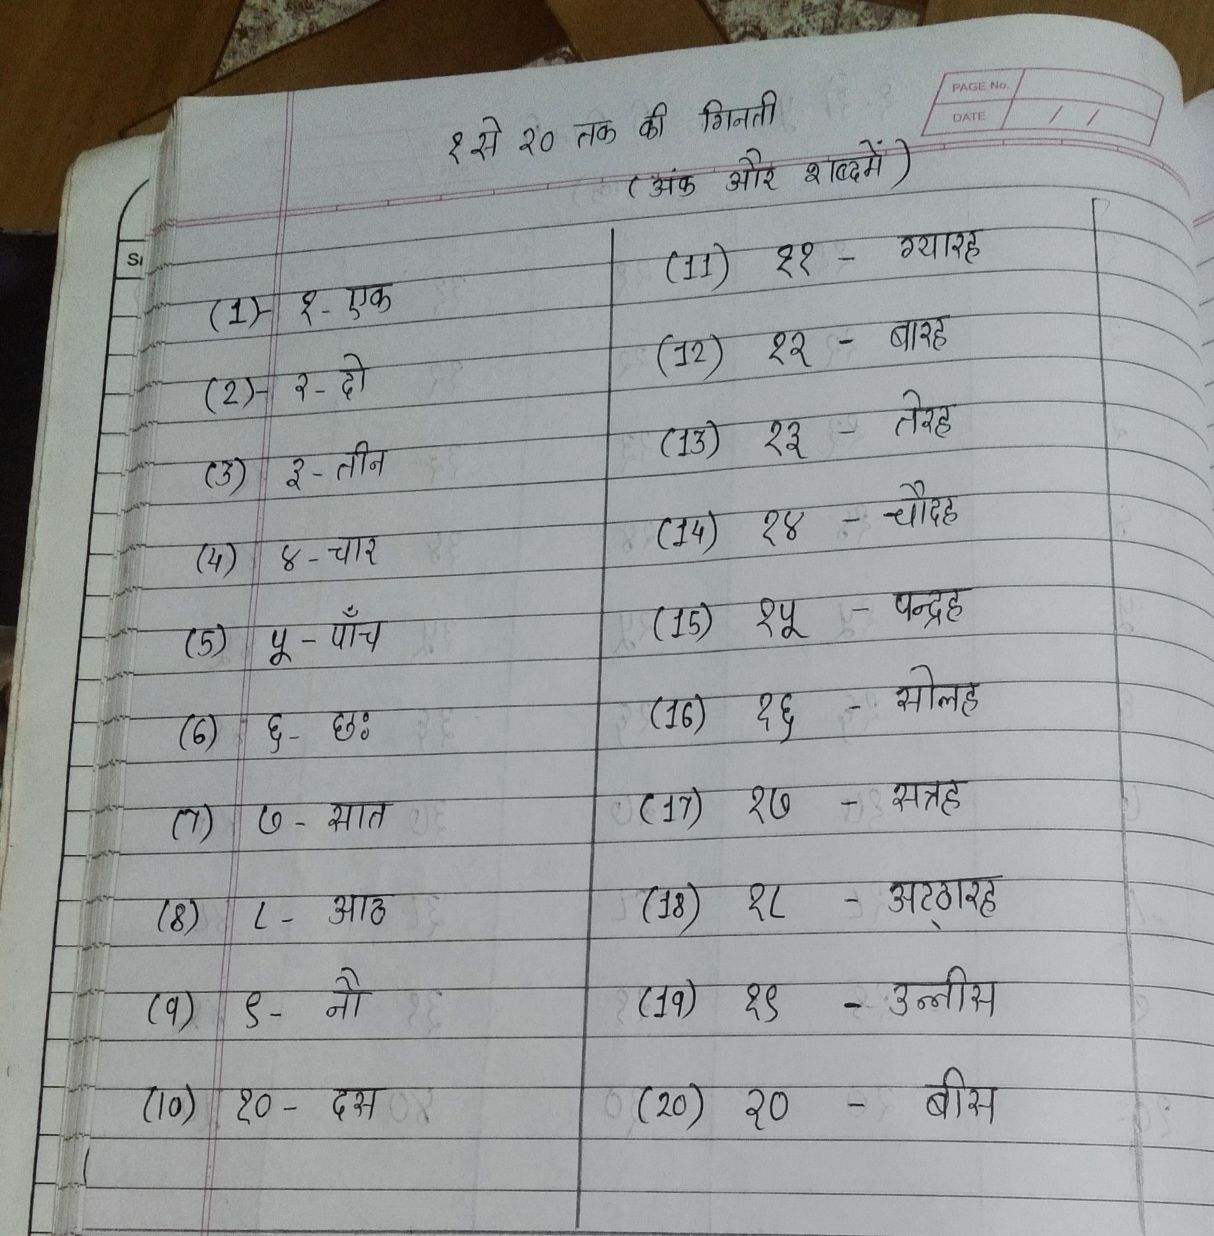 PAGE No.
DATE / /
१ से २० तक की गिनती
(अंक और शब्द में)
(1)- १- एक
(2)- २- दो
(3) ३- तीन
(4) ४- चार
(5) ५- पाँच
(6) ६- छः
(7) ७- सात
(8) ८- आठ
(9) ९- नौ
(10) १०- दस
(11) ११ - ग्यारह
(12) १२ - बारह
(13) १३ - तेरह
(14) १४ - चौदह
(15) १५ - पन्द्रह
(16) १६ - सोलह
(17) १७ - सत्रह
(18) १८ - अट्ठारह
(19) १९ - उन्नीस
(20) २० - बीस